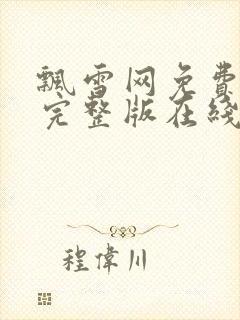 飄雪网免费
完整版在綫
程偉川